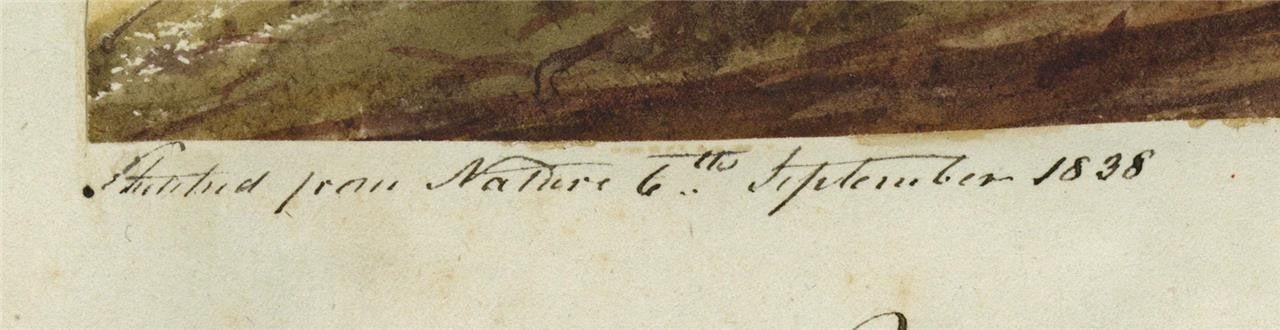 Sketched from Nature 6th September 1838